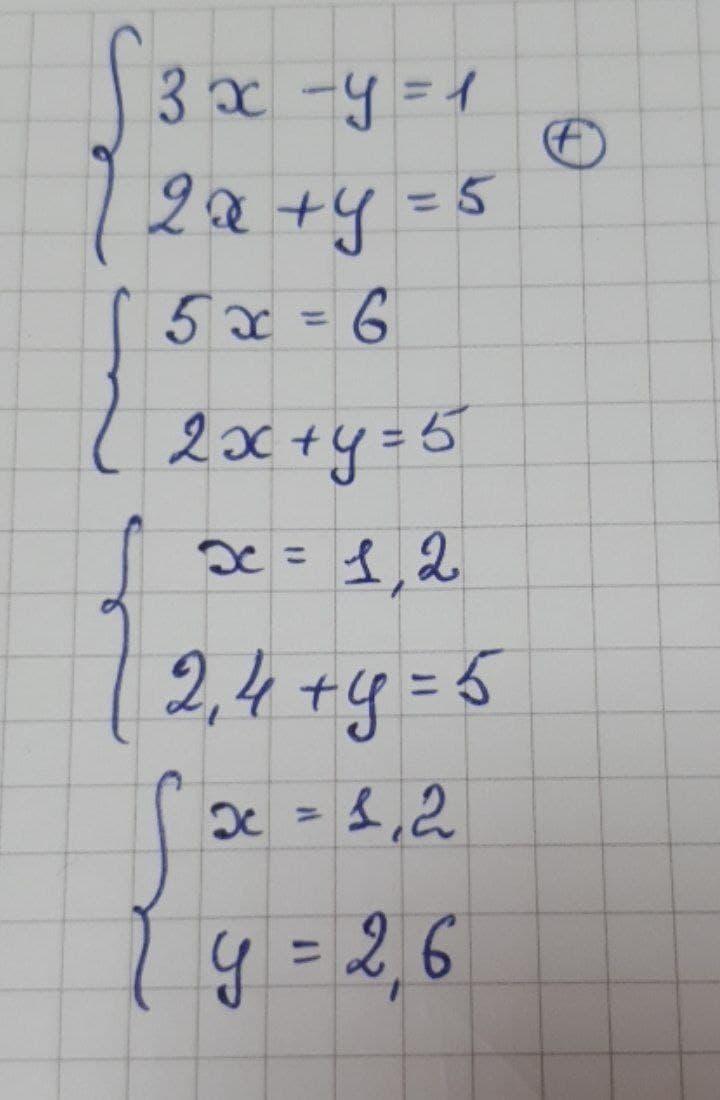 3x - y = 1
⊕
2x + y = 5
5x = 6
2x + y = 5
x = 1,2
2,4 + y = 5
x = 1,2
y = 2,6